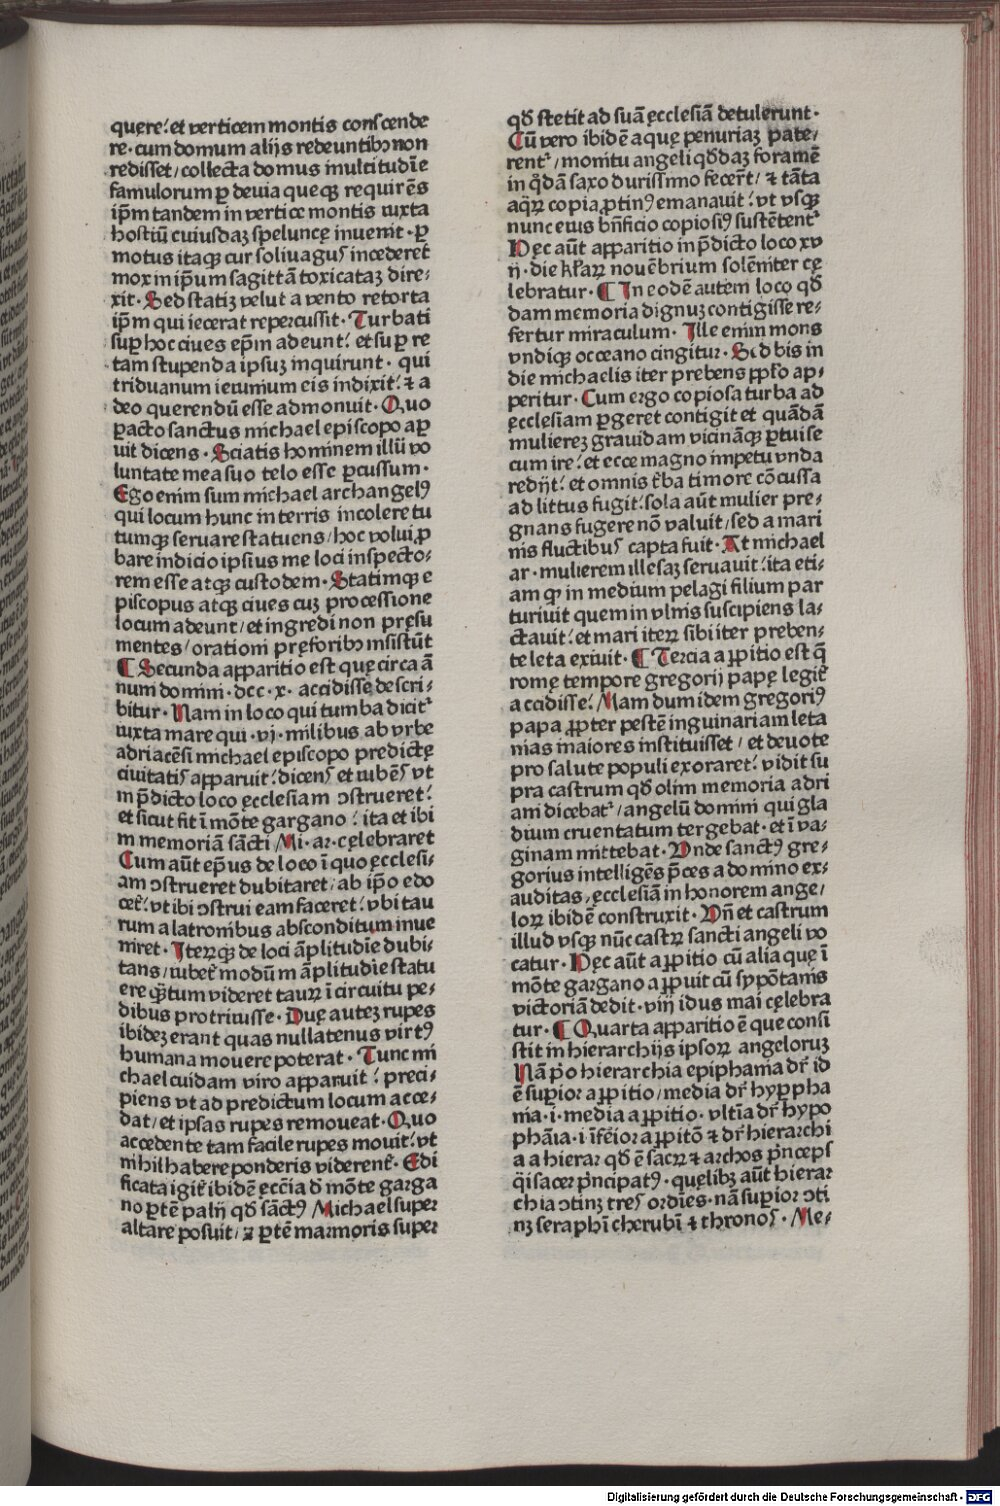 quęre: et verticem montis conscende
re · cum domum alijs redeuntibꝫ non
redisset / collecta domus multitudīe
famulorum ꝑ devia quecꝫ requirēs
ip̄m tandem in vertice montis iuxta
hostiū cuiusdaꝫ speluncę invenit · ꝑ
motus itaqꝫ cur solivagus incederet
mox in ip̄um sagittā toxicataꝫ dire⸗
xit · Sed statiꝫ velut a vento retorta
ip̄m qui iecerat repercussit · Turbati
suꝑ hoc cives ep̄m adeunt: et suꝑ re
tam stupenda ipsuꝫ inquirunt · qui
triduanum ieiunium eis indixit: ⁊ a
deo querendū esse admonuit · Quo
ꝑacto sanctus michael episcopo aꝑ
uit dicens · Sciatis hominem illū vo
luntate mea suo telo esse ꝑcussum ·
Ego enim sum michael archangelꝰ
qui locum hunc in terris incolere tu
tumqꝫ servare statuens / hoc volui ꝓ
bare indicio ipsius me loci inspecto⸗
rem esse atqꝫ custodem · Statimqꝫ e
piscopus atqꝫ cives cuꝫ processione
locum adeunt / et ingredi non pręsu
mentes / orationi pręforibꝫ insistūt
¶ Secunda apparitio est quę circa ā
num domini · dcc · x · accidisse descri⸗
bitur · Nam in loco qui tumba dicitᷣ
iuxta mare qui · vj · milibus ab vrbe
adriacēsi michael episcopo predictę
civitatis apparuit: dicens et iubēs vt
in p̄dicto loco ęcclesiam ↄstrueret:
et sicut fit ī mōte gargano: ita et ibi
in memoriā sācti Mi · ar · cęlebraret
Cum aūt ep̄us de loco ī quo ęcclesi⸗
am ↄstrueret dubitaret / ab ip̄o edo
cet̄: vt ibi ↄstrui eam faceret: vbi tau
rum a latronibus absconditum inve
niret · Iterqꝫ de loci āplitudīe dubi⸗
tans / iubet̄ modū in āplitudīe statu
ere qꝫtum videret taurꝝ ī circuitu pe⸗
dibus protrivisse · Duę auteꝫ rupes
ibideꝫ erant quas nullatenus virtꝰ
humana movere poterat · Tunc mi
chael cuidam viro apparuit: preci⸗
piens vt ad predictum locum acce⸗
dat / et ipsas rupes removeat · Quo
accedente tam facile rupes movit: vt
nihil habere ponderis viderent̄ · Edi
ficata igit̄ ibidē ęcc̄ia d̄ mōte garga
no ꝑtē palij qd̄ sāctꝰ Michael super
altare posuit / ⁊ ꝑtē marmoris super
qd̄ stetit ad suā ęcclesiā detulerunt ·
Cū vero ibidē aquę penuriaꝫ pate⸗
rentᷣ / monitu angeli qd̄daꝫ foramē
in qd̄ā saxo durissimo fecer̄t / ⁊ tāta
aqꝝ copia ꝓtinꝰ emanavit: vt vsqꝫ
nunc eius bn̄ficio copiosiꝰ sustētentᷣ
Hęc aūt apparitio in p̄dicto loco xv
ij · die kl̄aꝝ novēbrium solēniter cę
lebratur · ¶ In eodē autem loco qd̄
dam memoria dignuꝫ contigisse re⸗
fertur miraculum · Ille enim mons
vndiqꝫ occeano cingitur · Sed bis in
die michaelis iter prebens pp̄lo ap⸗
peritur · Cum ergo copiosa turba ad
ęcclesiam ꝑgeret contigit et quādā
mulierеꝫ gravidam vicināqꝫ ꝑtui se
cum ire: et ecce magno impetu vnda
redijt: et omnis t̄ba timore cōcussa
ad littus fugit: sola aūt mulier pre⸗
gnans fugere nō valuit / sed a mari
nis fluctibus capta fuit · At michael
ar · mulierem illesaꝫ servavit: ita eti⸗
am qꝫ in medium pelagi filium par
turivit quem in vlnis suscipiens la⸗
ctavit: et mari iteꝝ sibi iter preben⸗
te leta exivit · ¶ Tercia aꝑpitio est q̄
romę tempore gregorij papę legit̄
accidisse: Nam dum idem gregoriꝰ
papa ꝓpter pestē inguinariam leta
nias maiores instituisset / et devote
pro salute populi exoraret: vidit su
pra castrum qd̄ olim memoria adri
ani dicebatᷣ / angelū domini qui gla
dium cruentatum tergebat · et ī va⸗
ginam mittebat · Vnde sanctꝰ gre⸗
gorius intelligēs p̄ces a domino ex⸗
auditas / ęcclesiā in honorem ange⸗
loꝝ ibidē construxit · Vn̄ et castrum
illud vsqꝫ nūc castꝝ sancti angeli vo
catur · Hęc aūt aꝑpitio cū alia quę ī
mōte gargano aꝑpuit cū sypōtanis
victoriā dedit · viij idus mai cęlebra
tur · ¶ Quarta apparitio ē que consi
stit in hierarchijs ipsoꝝ angeloruꝫ
Nā p̄o hierarchia epiphania dr̄ id
ē suꝑior aꝑpitio / media dr̄ hyꝑpha
nia · i · media aꝑpitio · vltīa dr̄ hypo
phāia · i īfēior aꝑpitō ⁊ dr̄ hierarchi
a a hierar qd̄ ē sacꝝ ⁊ archos p̄nceps
q̄i sacer p̄ncipatꝰ · quęlibꝫ aūt hierar
chia ↄtinꝫ tres ordīes · nā suꝑior ↄti
nꝫ seraphī cherubī ⁊ thronos · Me⸗
Digitalisierung gefördert durch die Deutsche Forschungsgemeinschaft · DFG